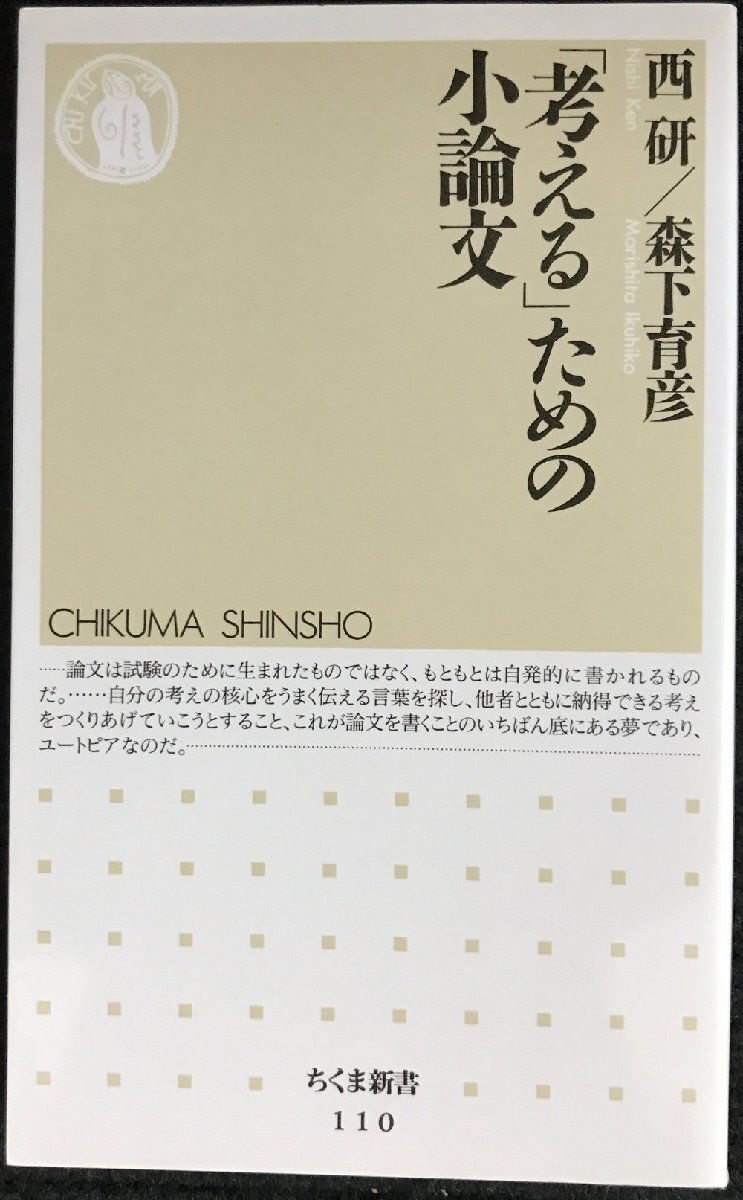 西 研／森下育彦
Nishi Ken
Morishita Ikuhiko
「考える」ための
小論文
CHIKUMA
CHIKUMA SHINSHO
……論文は試験のために生まれたものではなく、もともとは自発的に書かれるもの
だ。……自分の考えの核心をうまく伝える言葉を探し、他者とともに納得できる考え
をつくりあげていこうとすること、これが論文を書くことのいちばん底にある夢であり、
ユートピアなのだ。……………………………………………………………………
ちくま新書
110